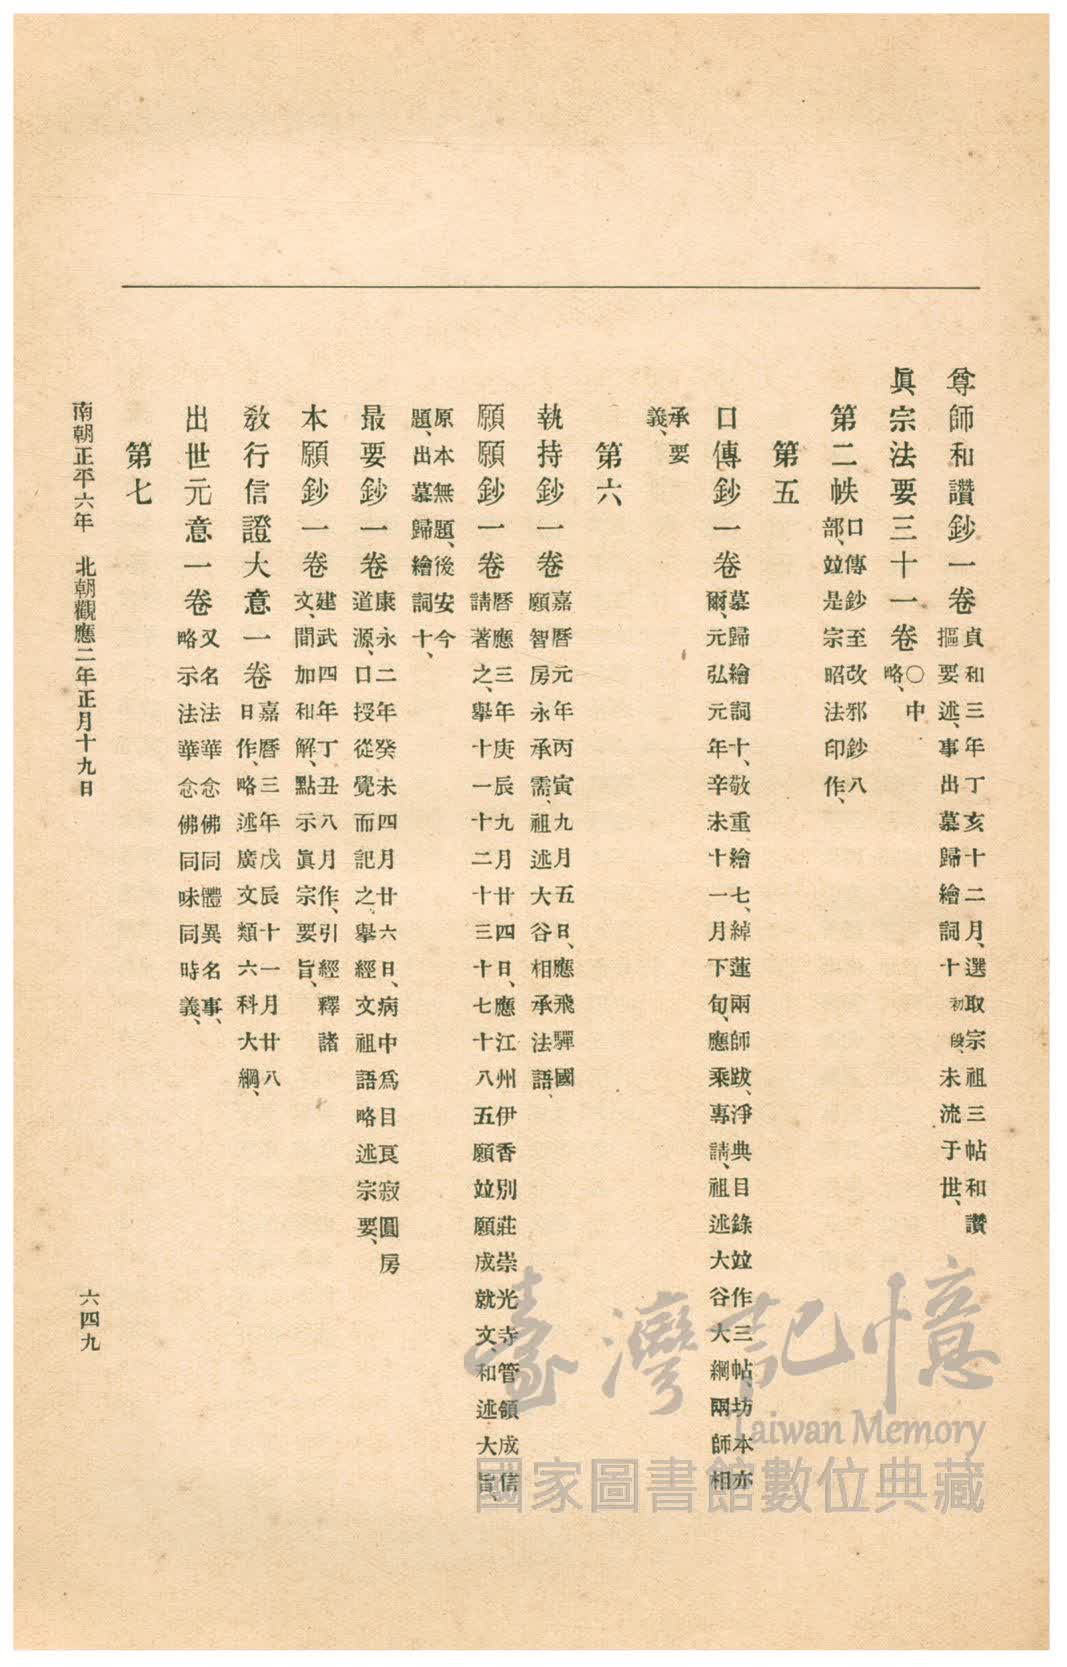 尊師和讚鈔一卷 貞和三年丁亥十二月、選取宗祖三帖和讚
摳要述、事出慕歸繪詞十初段、未流于世、
眞宗法要三十一卷 〇中
略、
第二帙 口傳鈔至改邪鈔八
部、竝是宗昭法印作、
第五
口傳鈔一卷 慕歸繪詞十、敬重繪七、綽蓮兩師跋、淨典目錄竝作三帖、坊本亦
爾、元弘元年辛未十一月下旬、應乘專請、祖述大谷大綱兩師相
承要
義、
第六
執持鈔一卷 嘉曆元年丙寅九月五日、應飛驒國
願智房永承需、祖述大谷相承法語、
願願鈔一卷 曆應三年庚辰九月廿四日、應江州伊香別莊崇光寺管領成信
請著之、擧十一十二十三十七十八五願竝願成就文、和述大旨、
原本無題、後安今
題、出慕歸繪詞十、
最要鈔一卷 康永二年癸未四月廿六日、病中爲目良寂圓房
道源、口授從覺而記之、擧經文祖語略述宗要、
本願鈔一卷 建武四年丁丑八月作、引經釋諸
文、間加和解、點示眞宗要旨、
敎行信證大意一卷 嘉曆三年戊辰十一月廿八
日作、略述廣文類六科大綱、
出世元意一卷 又名法華念佛同體異名事、
略示法華念佛同味同時義、
第七
南朝正平六年　北朝觀應二年正月十九日
六四九
臺灣記憶
Taiwan Memory
國家圖書館數位典藏